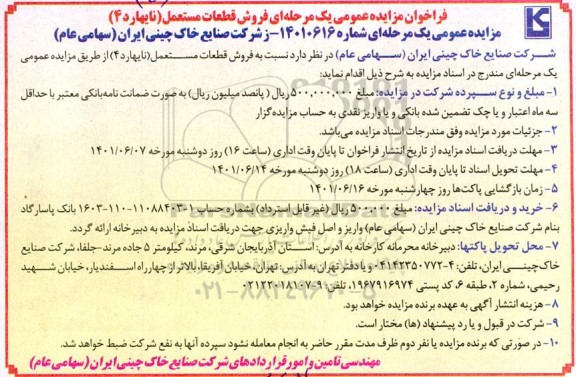 فراخوان مزایده عمومی یک مرحله‌ای فروش قطعات مستعمل(نایهارد۴)
مزایده عمومی یک مرحله‌ای شماره ۱۴۰۱۰۶۱۶-ز شرکت صنایع خاک چینی ایران (سهامی عام)
شرکت صنایع خاک چینی ایران (سهامی عام) در نظر دارد نسبت به فروش قطعات مستعمل(نایهارد۴) از طریق مزایده عمومی
یک مرحله‌ای مندرج در اسناد مزایده به شرح ذیل اقدام نماید:
۱- مبلغ و نوع سپرده شرکت در مزایده: مبلغ ۵۰۰,۰۰۰,۰۰۰ ریال ( پانصد میلیون ریال) به صورت ضمانت نامه بانکی معتبر با حداقل
سه ماه اعتبار و یا چک تضمین شده بانکی و یا واریز نقدی به حساب مزایده گزار
۲- جزئیات مورد مزایده وفق مندرجات اسناد مزایده می‌باشد.
۳- مهلت دریافت اسناد مزایده از تاریخ انتشار فراخوان تا پایان وقت اداری (ساعت ۱۶) روز دوشنبه مورخه ۱۴۰۱/۰۶/۰۷
۴- مهلت تحویل اسناد تا پایان وقت اداری (ساعت ۱۸) روز دوشنبه مورخه ۱۴۰۱/۰۶/۱۴
۵- زمان بازگشایی پاکت‌ها روز چهارشنبه مورخه ۱۴۰۱/۰۶/۱۶
۶- خرید و دریافت اسناد مزایده: مبلغ ۵۰۰,۰۰۰ ریال (غیر قابل استرداد) بشماره حساب ۱-۱۱۰۸۸۴۰۳-۱۱۰-۱۶۰۳ بانک پاسارگاد
بنام شرکت صنایع خاک چینی ایران (سهامی عام) واریز و اصل فیش واریزی جهت دریافت اسناد مزایده به دبیرخانه ارائه گردد.
۷- محل تحویل پاکتها: دبیرخانه محرمانه کارخانه به آدرس: استان آذربایجان شرقی، مرند، کیلومتر ۵ جاده مرند-جلفا، شرکت صنایع
خاک چینی ایران، تلفن: ۴-۰۴۱۴۲۳۵۰۷۷۲ و یا دفتر تهران به آدرس: تهران، خیابان آفریقا، بالاتر از چهارراه اسفندیار، خیابان شهید
رحیمی، شماره ۲، طبقه ۶، کد پستی ۱۹۶۷۹۱۶۹۷۴، تلفن: ۹-۰۲۱۲۲۰۱۸۱۰۷
۸- هزینه انتشار آگهی به عهده برنده مزایده خواهد بود.
۹- شرکت در قبول و یا رد پیشنهاد (ها) مختار است.
۱۰- در صورتی که برنده مزایده یا نفر دوم ظرف مدت مقرر حاضر به انجام معامله نشود سپرده آنها به نفع شرکت ضبط خواهد شد.
مهندسی تامین و امور قراردادهای شرکت صنایع خاک چینی ایران (سهامی عام)
ParsNamadData
۰۲۱-۸۸۳۴۹۶۷۰-۵